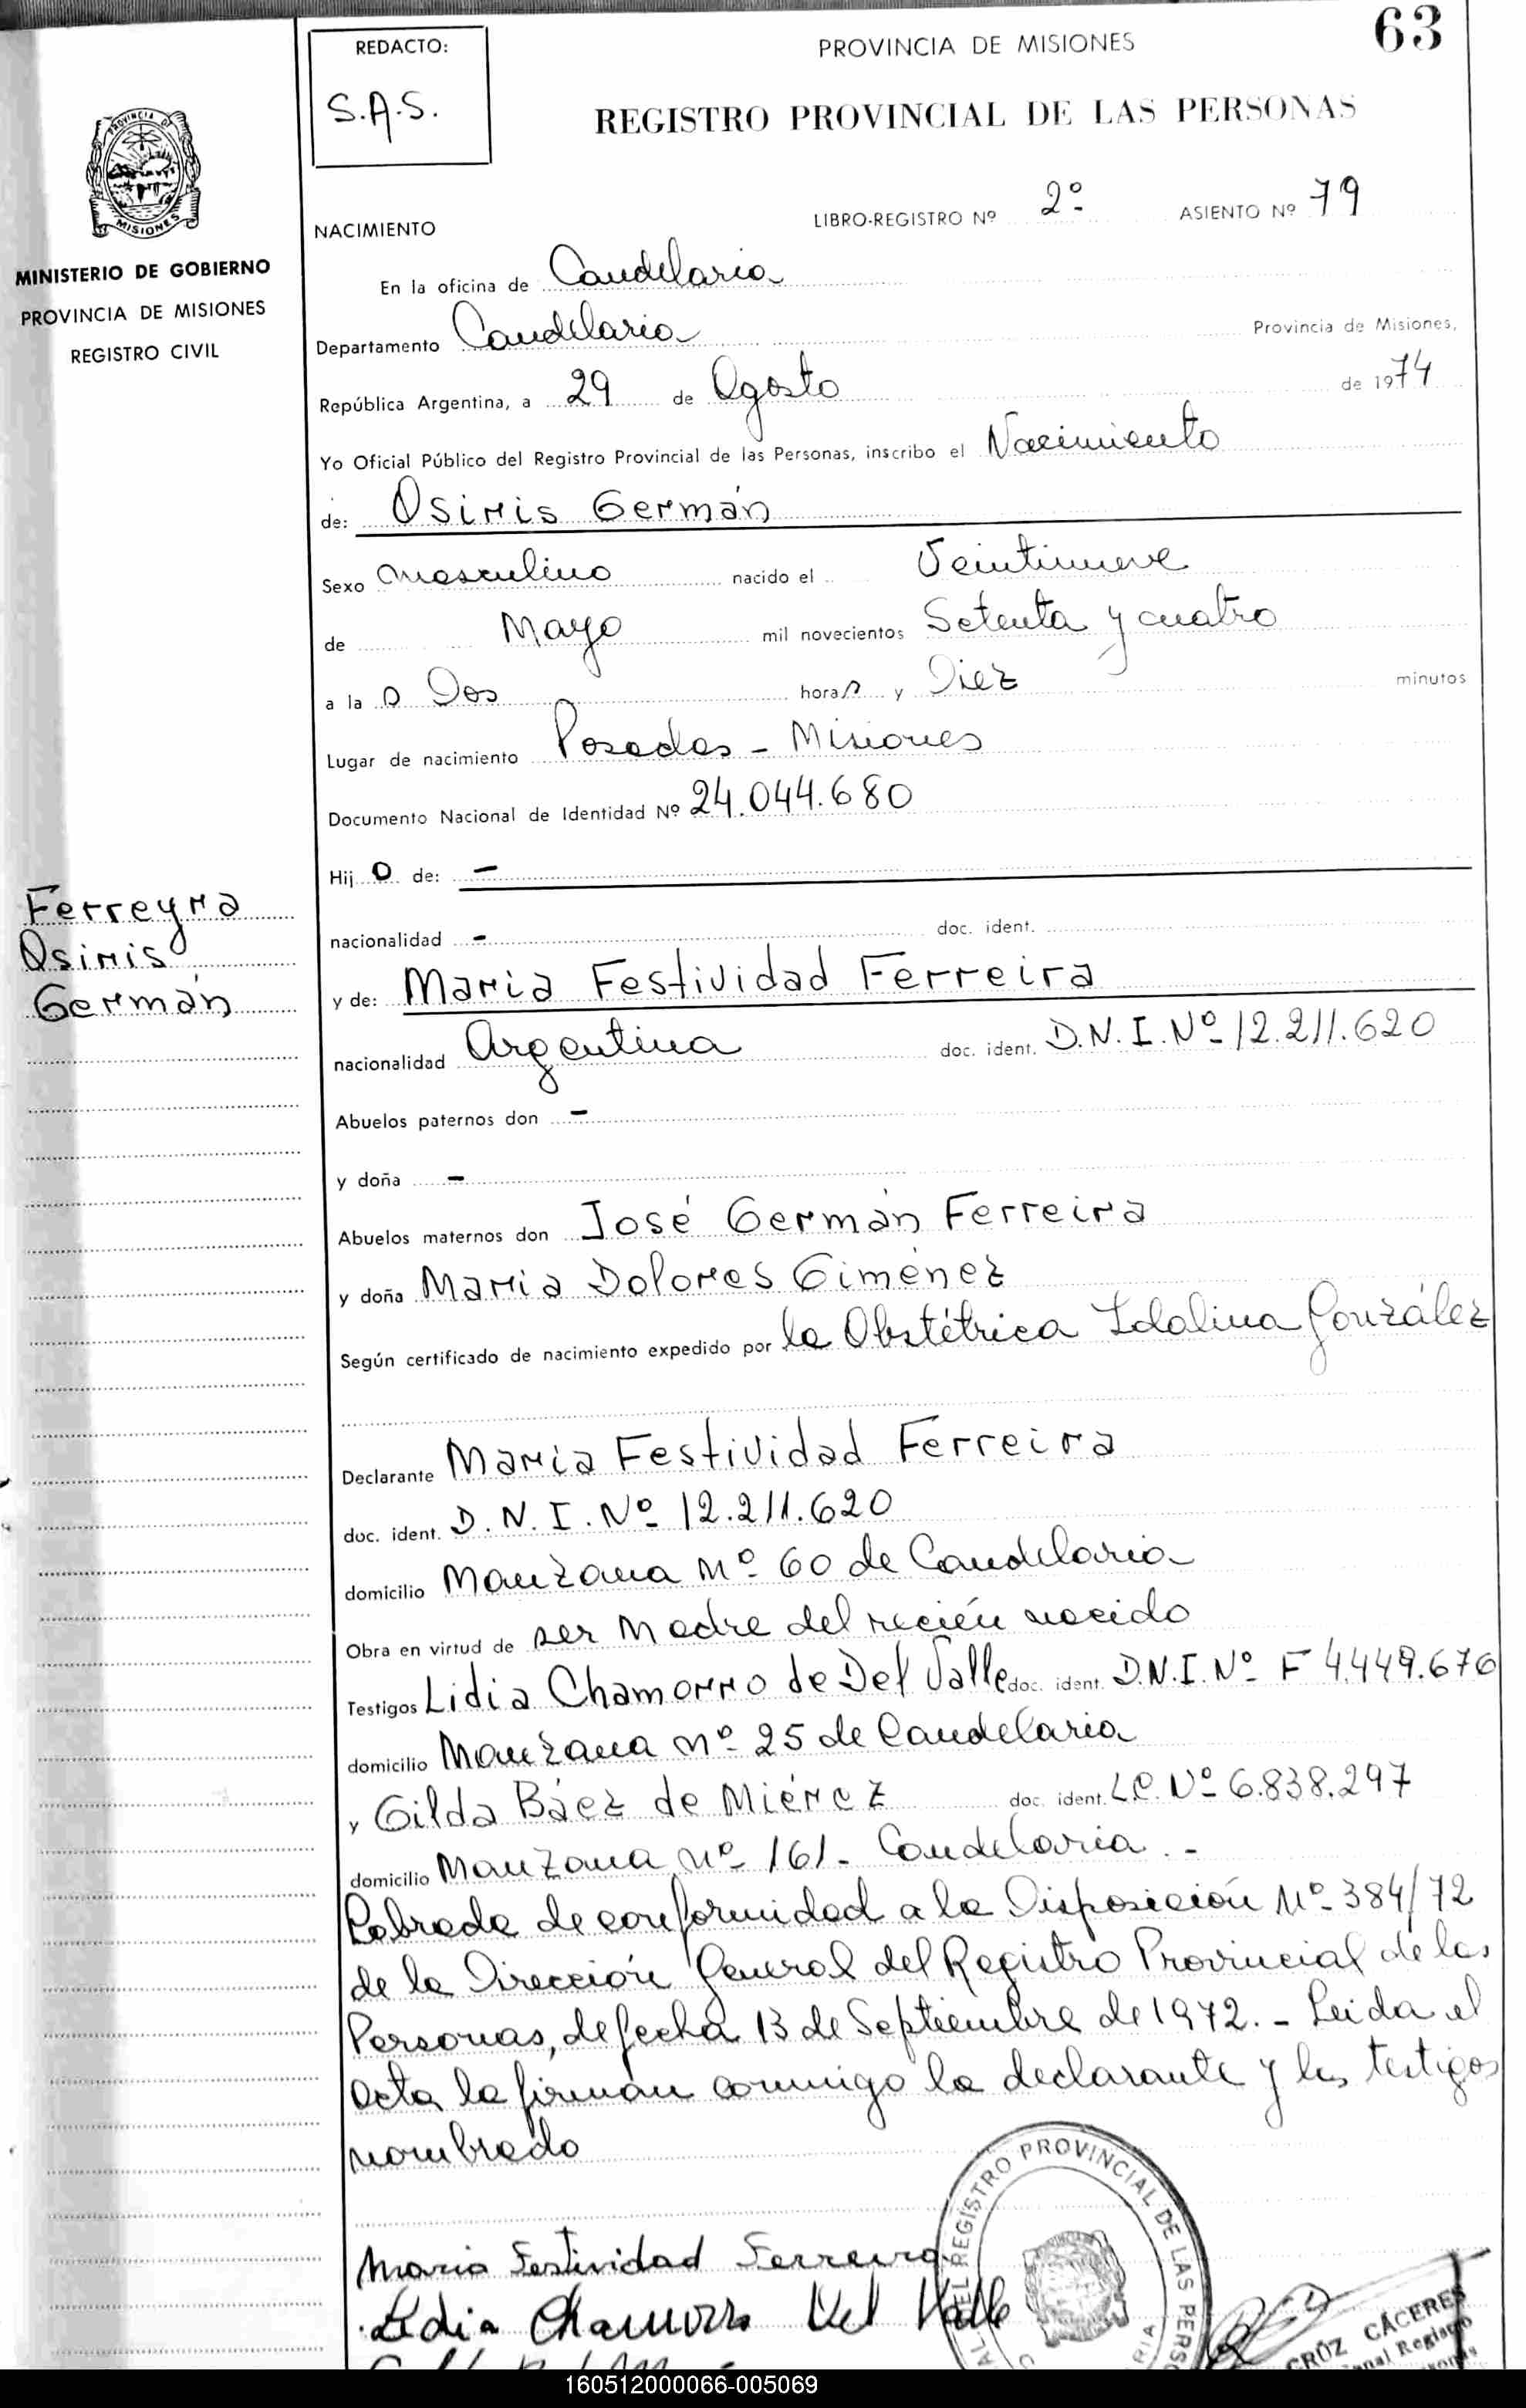 REDACTO:
S.A.S.
PROVINCIA DE MISIONES
63
REGISTRO PROVINCIAL DE LAS PERSONAS
PROVINCIA DE
MISIONES
MINISTERIO DE GOBIERNO
PROVINCIA DE MISIONES
REGISTRO CIVIL
NACIMIENTO
LIBRO-REGISTRO Nº 2º ASIENTO Nº 79
En la oficina de Candelaria
Departamento Candelaria Provincia de Misiones,
República Argentina, a 29 de Agosto de 1974
Yo Oficial Público del Registro Provincial de las Personas, inscribo el Nacimiento
de: Osiris Germán
Sexo Masculino nacido el Veintinueve
de Mayo mil novecientos Setenta y cuatro
a la s Dos horas y Diez minutos
Lugar de nacimiento Posadas - Misiones
Documento Nacional de Identidad Nº 24.044.680
Hij o de: -
nacionalidad - doc. ident.
y de: Maria Festividad Ferreira
nacionalidad Argentina doc. ident. D.N.I. Nº 12.211.620
Abuelos paternos don -
y doña -
Abuelos maternos don José Germán Ferreira
y doña Maria Dolores Giménez
Según certificado de nacimiento expedido por la Obstétrica Idalina González
Declarante Maria Festividad Ferreira
doc. ident. D.N.I. Nº 12.211.620
domicilio Manzana Nº 60 de Candelaria
Obra en virtud de ser Madre del recién nacido
Testigos Lidia Chamorro de Del Valle doc. ident. D.N.I. Nº F 4.449.676
domicilio Manzana nº 25 de Candelaria
y Gilda Báez de Miérez doc. ident. L.C. Nº 6.838.297
domicilio Manzana nº 161 - Candelaria . -
Labrada de conformidad a la Disposición Nº 384/72
de la Dirección General del Registro Provincial de las
Personas, de fecha 13 de Septiembre de 1972. - Leida el
acta la firman conmigo la declarante y los testigos
nombrado
Ferreyra
Osiris
Germán
Maria Festividad Ferreira
Lidia Chamorro Del Valle
REGISTRO PROVINCIAL DE LAS PERSO
CRUZ CÁCERES
160512000066-005069